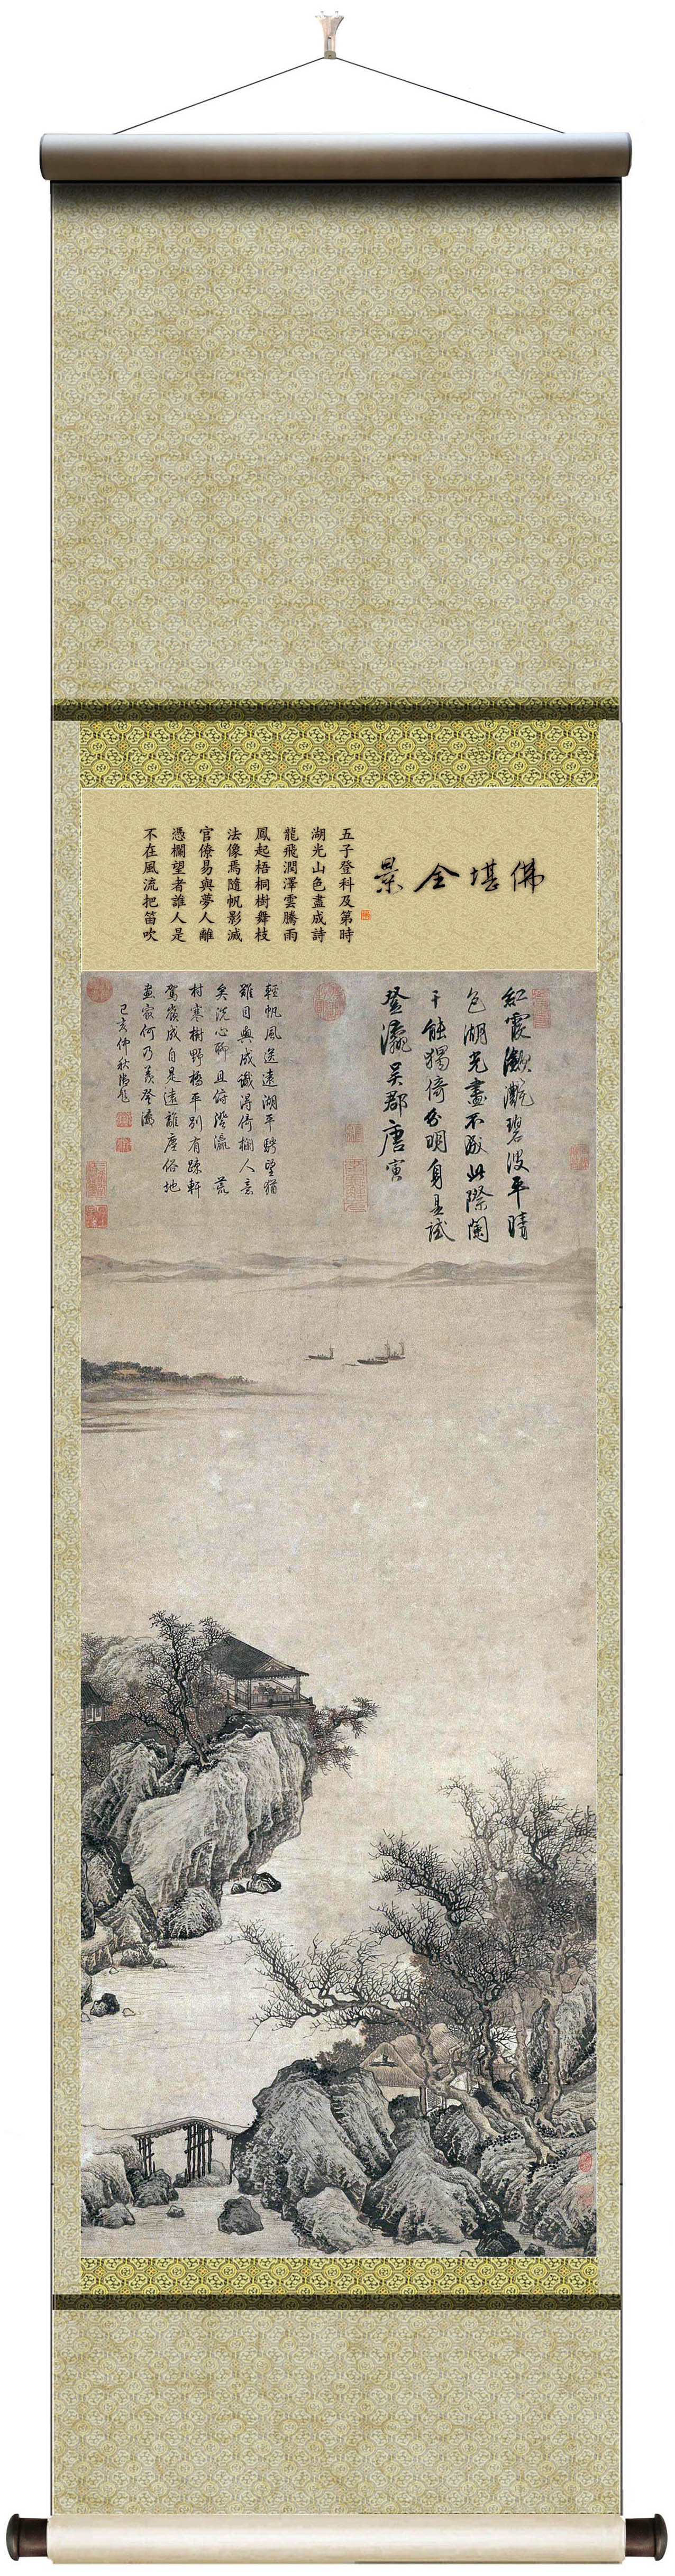 佛堪全景
五子登科及第時
湖光山色盡成詩
龍飛潤澤雲騰雨
鳳起梧桐樹舞枝
法像焉隨帆影滅
官僚易與夢人離
憑欄望者誰人是
不在風流把笛吹
紅霞瀲灩碧波平晴
色湖光畫不成此際闌
干能獨倚分明身是試
登瀛吳郡唐寅
輕帆風送遠湖平騁望猶
難目與成識得倚欄人意
矣洗心聊且俯澄瀛 荒
村寒樹野橋平別有疎軒
駕巘成自是遠離塵俗地
畫家何乃羨登瀛
己亥仲秋御題